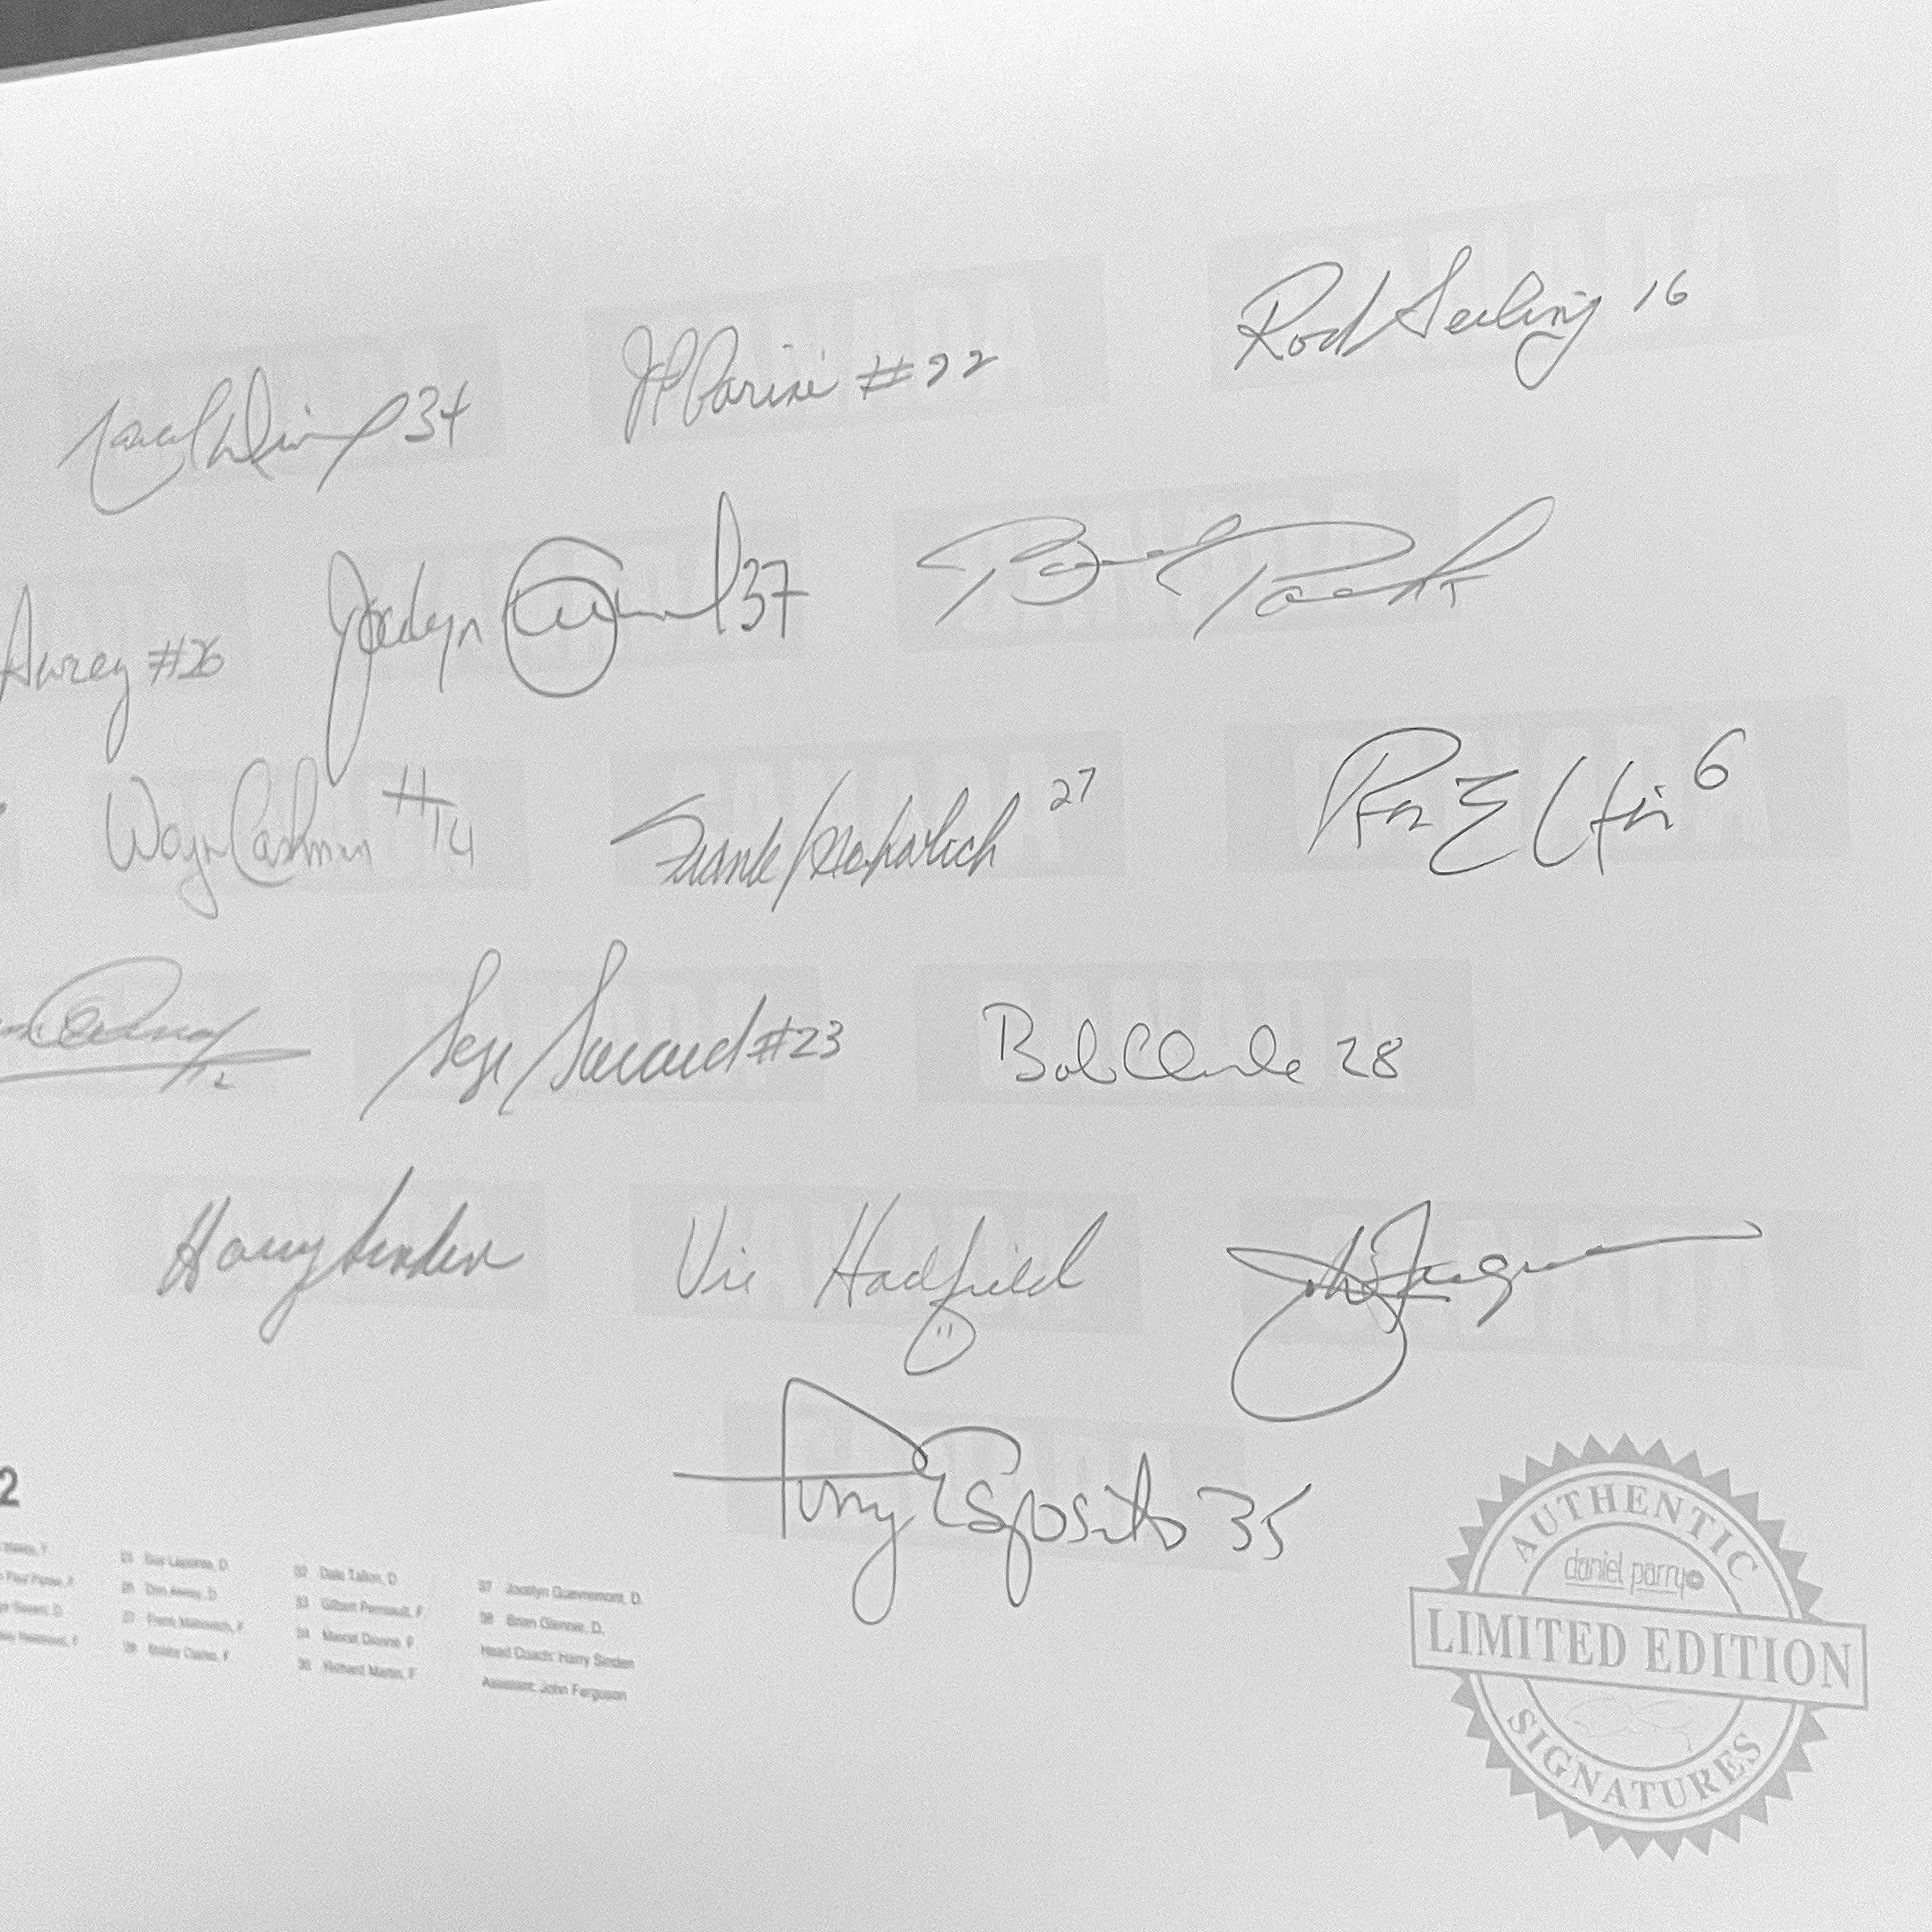 Marcel Dionne 34
JP Parise #22
Rod Seiling 16
Awrey #26
Jocelyn Guevremont 37
Brad Park
Wayne Cashman #14
Frank Mahovlich 27
Ron Ellis 6
12
Serge Savard #23
Bob Clarke 28
Harry Sinden
Vic Hadfield
John Ferguson
Tony Esposito 35
CANADA
2
Guy Lapointe, D.
32 Dale Tallon, D.
37 Jocelyn Guevremont, D.
26 Don Awrey, D.
33 Gilbert Perreault, F.
38 Brian Glennie, D.
27 Frank Mahovlich, F.
34 Marcel Dionne, F.
Head Coach: Harry Sinden
28 Bobby Clarke, F.
36 Richard Martin, F.
Assistant: John Ferguson
AUTHENTIC
daniel parry
LIMITED EDITION
SIGNATURES